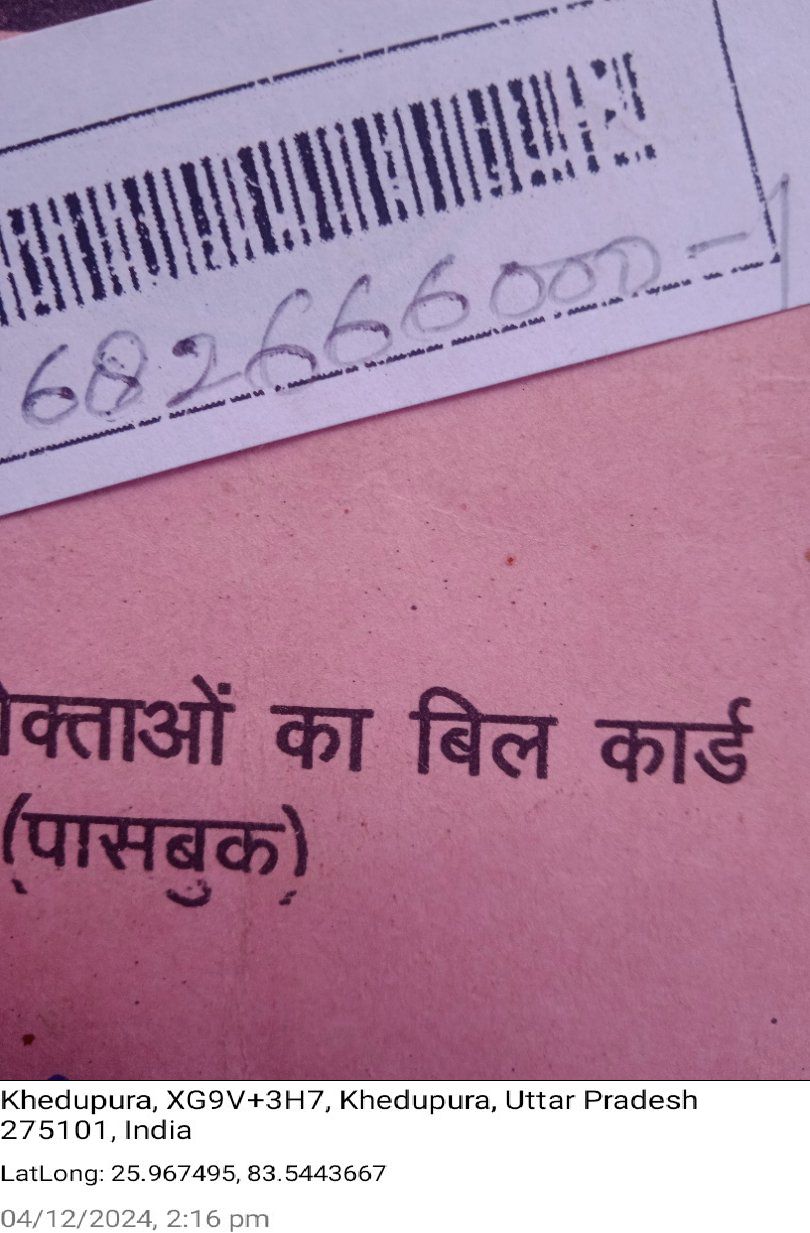 682666000-1
क्ताओं का बिल कार्ड
(पासबुक)
Khedupura, XG9V+3H7, Khedupura, Uttar Pradesh
275101, India
LatLong: 25.967495, 83.5443667
04/12/2024, 2:16 pm